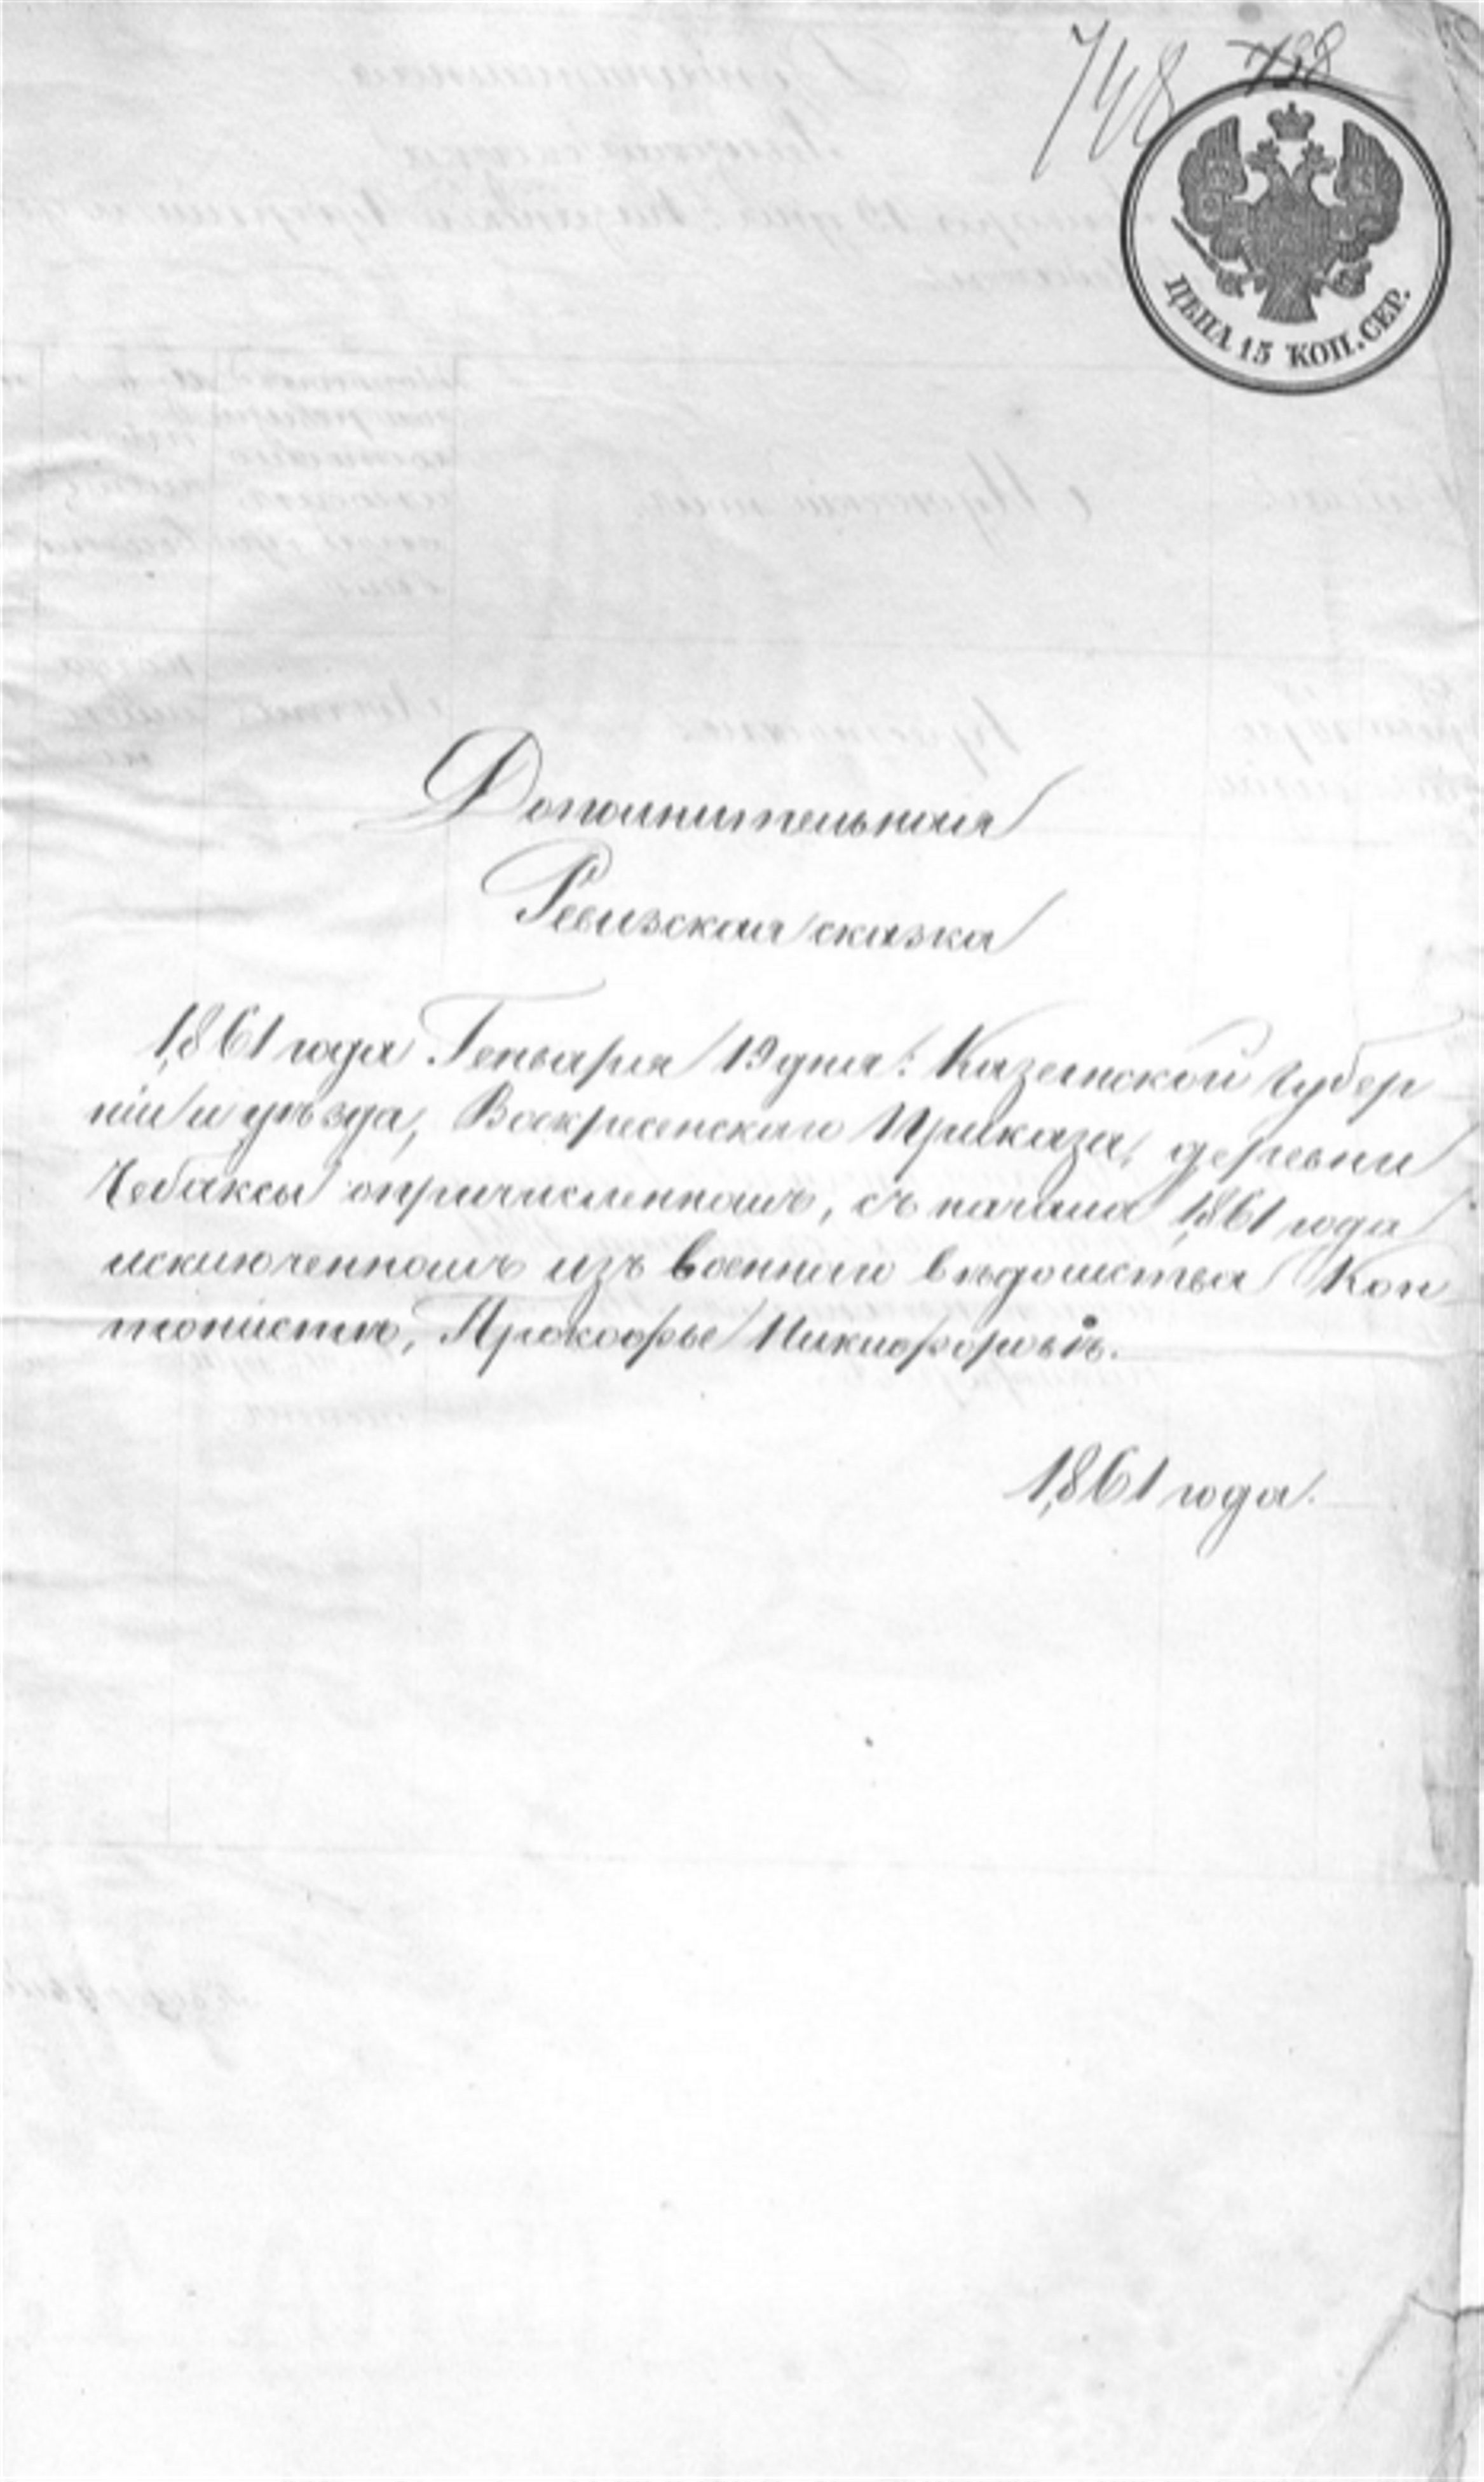 748 738
ЦѢНА 15 КОП. СЕР.
Дополнительная
Ревизская сказка
1861 года Генваря 19 дня: Казанской Губер
ніи и уѣзда, Воскресенскаго Приказа, деревни
Чебаксы опричисленномъ, съ начала 1861 года
исключенномъ изъ военнаго вѣдомства Кон
тонистѣ, Прокофье Никифоровѣ.
1861 года.